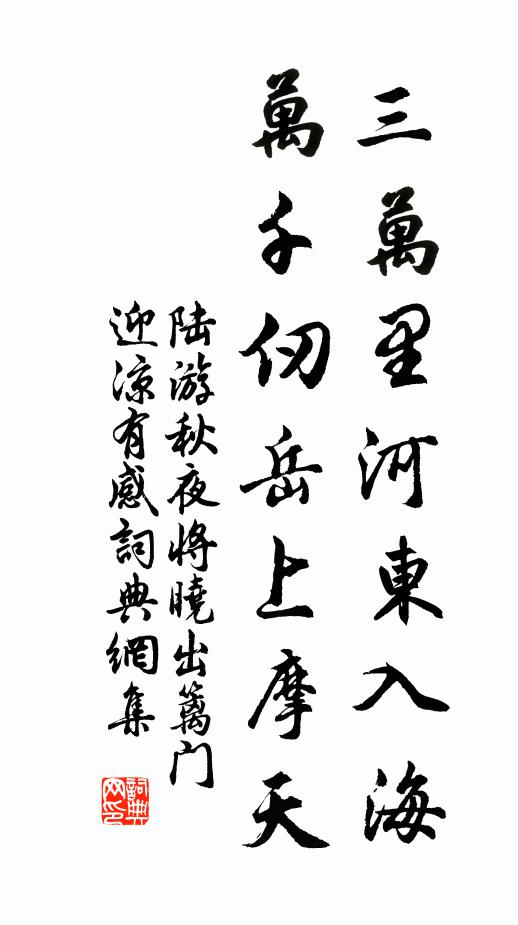 三萬里河東入海
萬千仞岳上摩天
陆游秋夜将曉出篱门
迎凉有感詞典網集
詞典网印